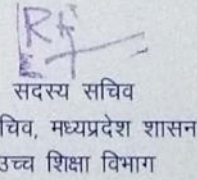 सदस्य सचिव
चिव, मध्यप्रदेश शासन
उच्च शिक्षा विभाग